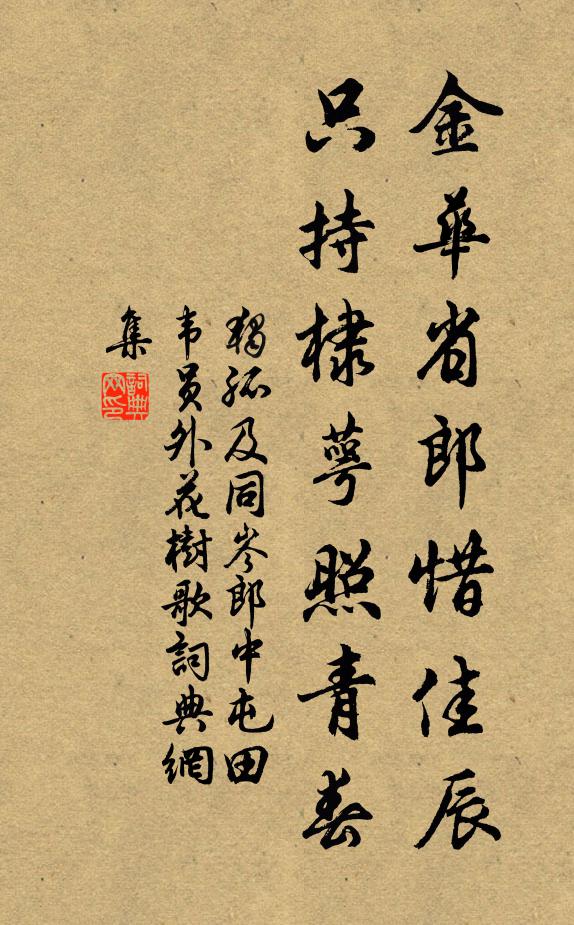 金華省郎惜佳辰
只持棣萼照青春
獨孤及同岑郎中屯田
韦员外花樹歌詞典網
集
詞典網印